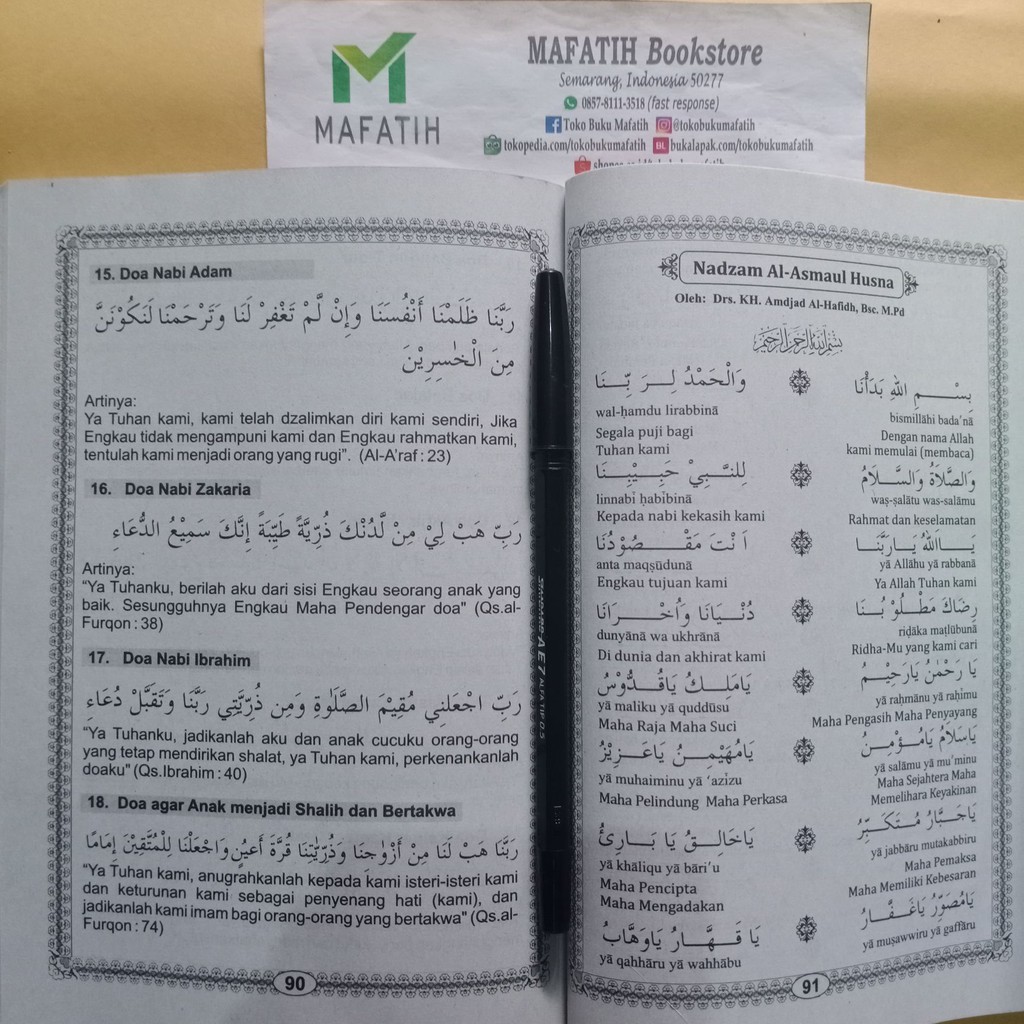 MAFATIH
MAFATIH Bookstore
Semarang, Indonesia 50277
0857-8111-3518 (fast response)
Toko Buku Mafatih @tokobukumafatih
tokopedia.com/tokobukumafatih BL bukalapak.com/tokobukumafatih
15. Doa Nabi Adam
رَبَّنَا ظَلَمْنَا أَنْفُسَنَا وَإِنْ لَّمْ تَغْفِرْ لَنَا وَتَرْحَمْنَا لَنَكُوْنَنَّ
مِنَ الْخٰسِرِيْنَ
Artinya:
Ya Tuhan kami, kami telah dzalimkan diri kami sendiri, Jika
Engkau tidak mengampuni kami dan Engkau rahmatkan kami,
tentulah kami menjadi orang yang rugi”. (Al-A'raf : 23)
16. Doa Nabi Zakaria
رَبِّ هَبْ لِيْ مِنْ لَّدُنْكَ ذُرِّيَّةً طَيِّبَةً إِنَّكَ سَمِيْعُ الدُّعَاءِ
Artinya:
“Ya Tuhanku, berilah aku dari sisi Engkau seorang anak yang
baik. Sesungguhnya Engkau Maha Pendengar doa" (Qs.al-
Furqon : 38)
17. Doa Nabi Ibrahim
رَبِّ اجْعَلنِي مُقِيْمَ الصَّلَوٰةِ وَمِن ذُرِّيَّتِي رَبَّنَا وَتَقَبَّلْ دُعَاءِ
“Ya Tuhanku, jadikanlah aku dan anak cucuku orang-orang
yang tetap mendirikan shalat, ya Tuhan kami, perkenankanlah
doaku" (Qs.Ibrahim : 40)
18. Doa agar Anak menjadi Shalih dan Bertakwa
رَبَّنَا هَبْ لَنَا مِنْ أَزْوَاجِنَا وَذُرِّيّٰتِنَا قُرَّةَ أَعْيُنٍ وَاجْعَلْنَا لِلْمُتَّقِيْنَ إِمَامًا
“Ya Tuhan kami, anugrahkanlah kepada kami isteri-isteri kami
dan keturunan kami sebagai penyenang hati (kami), dan
jadikanlah kami imam bagi orang-orang yang bertakwa" (Qs.al-
Furqon : 74)
90
STANDARD AE7 ALFATIP 0.5
Nadzam Al-Asmaul Husna
Oleh: Drs. KH. Amdjad Al-Hafidh, Bsc. M.Pd
بِسْمِ اللهِ الرَّحْمٰنِ الرَّحِيْمِ
بِسْـــمِ اللهِ بَدَأْنَا وَالْحَمْدُ لِـــرَ بِّـــنَا
bismillāhi bada'nā wal-ḥamdu lirabbinā
Dengan nama Allah Segala puji bagi
kami memulai (membaca) Tuhan kami
وَالصَّلَاةُ وَالسَّـــلَامُ لِلنَّـــبِيْ حَبِـــيْبِـــنَا
waṣ-ṣalātu was-salāmu linnabi ḥabibinā
Rahmat dan keselamatan Kepada nabi kekasih kami
يَـــااللهُ يَـــارَبَّنَا اَنْتَ مَقْـــصُوْدُنَا
yā Allāhu yā rabbanā anta maqṣūdunā
Ya Allah Tuhan kami Engkau tujuan kami
رِضَاكَ مَطْـــلُوْ بُـــنَا دُنْـــيَانَا وَاُخْـــرَانَا
riḍāka maṭlūbunā dunyānā wa ukhrānā
Ridha-Mu yang kami cari Di dunia dan akhirat kami
يَا رَحْمٰنُ يَارَحِيْـــمُ يَامَلِـــكُ يَاقُـــدُّوْسُ
yā raḥmānu yā raḥimu yā maliku yā quddūsu
Maha Pengasih Maha Penyayang Maha Raja Maha Suci
يَاسَلَامُ يَامُـــؤْمِـــنُ يَامُهَيْمِـــنُ يَاعَـــزِيْزُ
yā salāmu yā mu'minu yā muhaiminu yā ‘azizu
Maha Sejahtera Maha Maha Pelindung Maha Perkasa
Memelihara Keyakinan
يَاجَـــبَّارُ مُـــتَكَـــبِّرُ يَاخَالِـــقُ يَا بَـــارِئُ
yā jabbāru mutakabbiru yā khāliqu yā bāri'u
Maha Pemaksa Maha Pencipta
Maha Memiliki Kebesaran Maha Mengadakan
يَامُصَوِّرُ يَاغَـــفَّـــارُ يَا قَـــهَّـــارُ يَاوَهَّابُ
yā muṣawwiru yā gaffāru yā qahhāru yā wahhābu
91